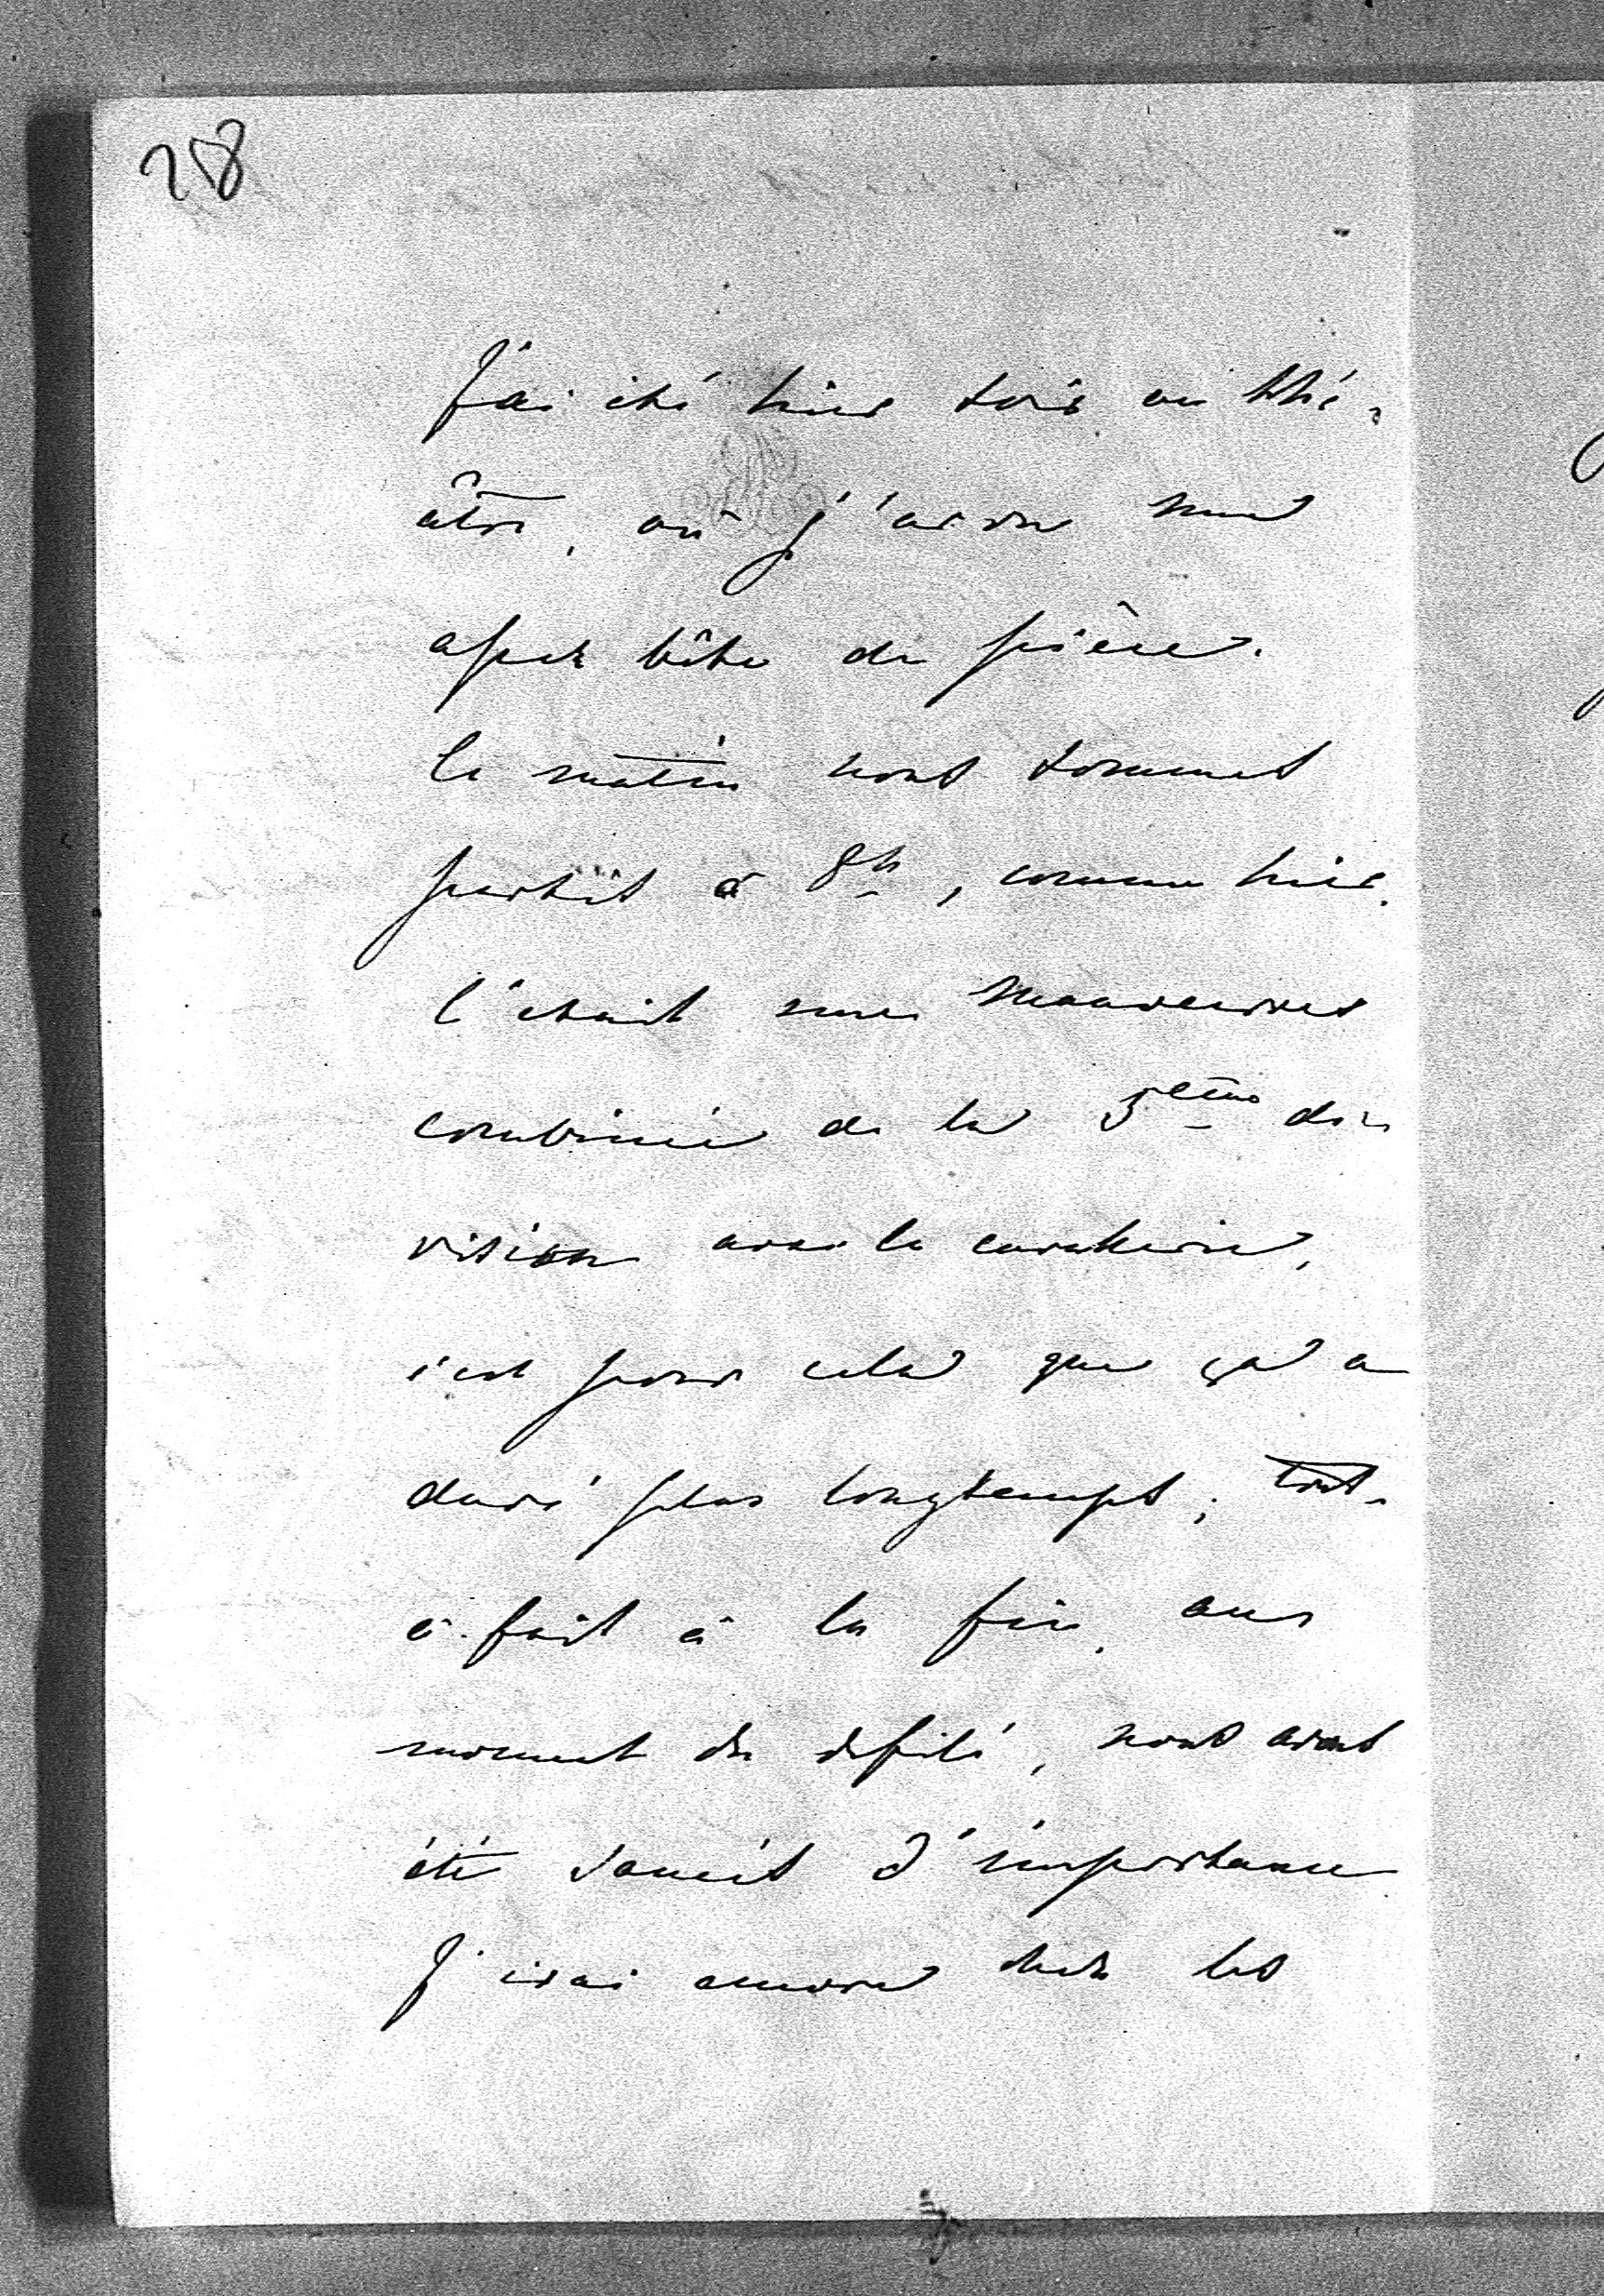 218
J'ai été hier soir au thé-
âtre, où j'ai vu une
assez bête de pièce.
Ce matin nous sommes
partis à 8h, comme hier.
C'était une manœuvre
combiné de la 5ème di-
vision avec la cavalerie,
c'est pour cela que ça a
duré plus longtemps; tout-
à-fait à la fin, au
moment du défilé, nous avons
été saucés d'importance
J'irai encore chez les